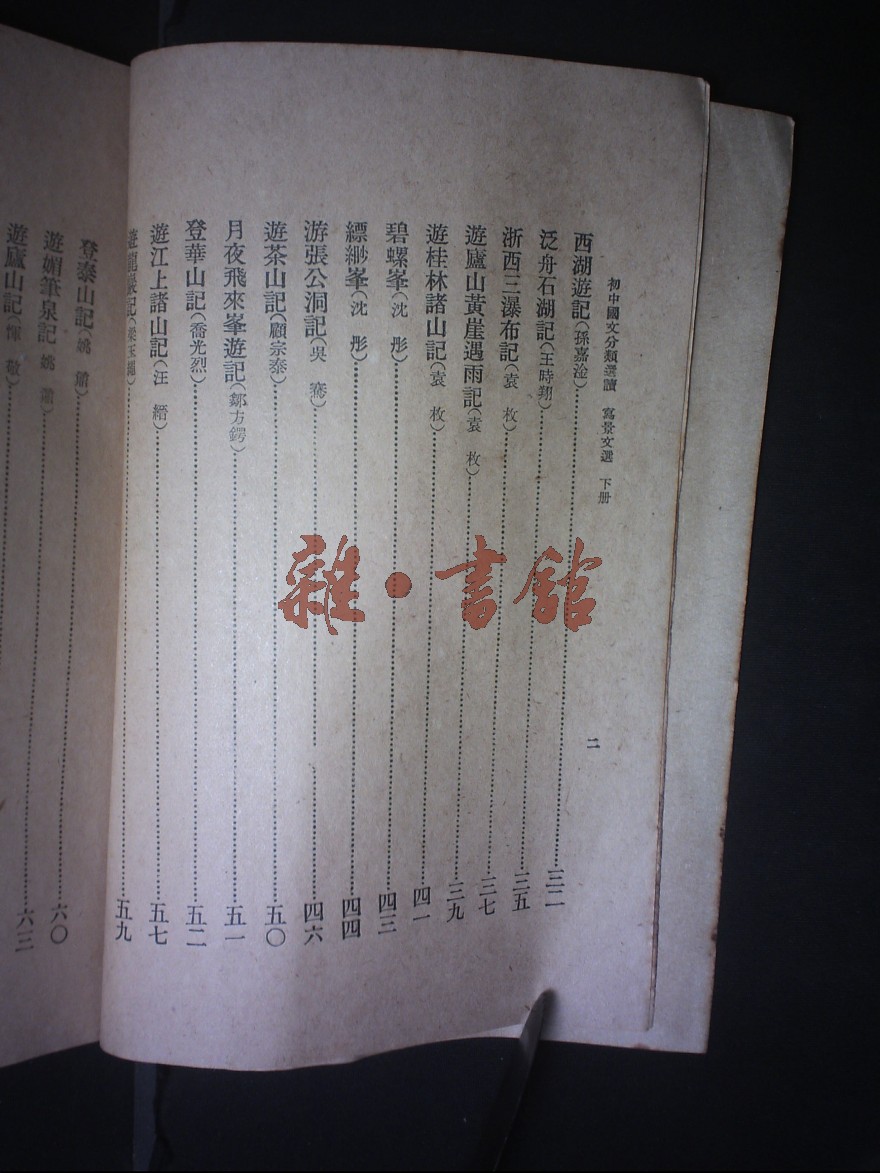 初中國文分類選讀 寫景文選 下册
二
西湖遊記(孫嘉淦)三二
泛舟石湖記(王時翔)三五
浙西三瀑布記(袁枚)三七
遊廬山黃崖遇雨記(袁枚)三九
遊桂林諸山記(袁枚)四一
碧螺峯(沈彤)四三
縹緲峯(沈彤)四四
游張公洞記(吳騫)四六
遊茶山記(顧宗泰)五〇
月夜飛來峯遊記(鄒方鍔)五一
登華山記(喬光烈)五二
遊江上諸山記(汪縉)五七
遊龍 記(梁玉繩)五九
登泰山記(姚鼐)六〇
遊媚筆泉記 姚鼐
遊廬山記(惲敬)六三
雜·書館